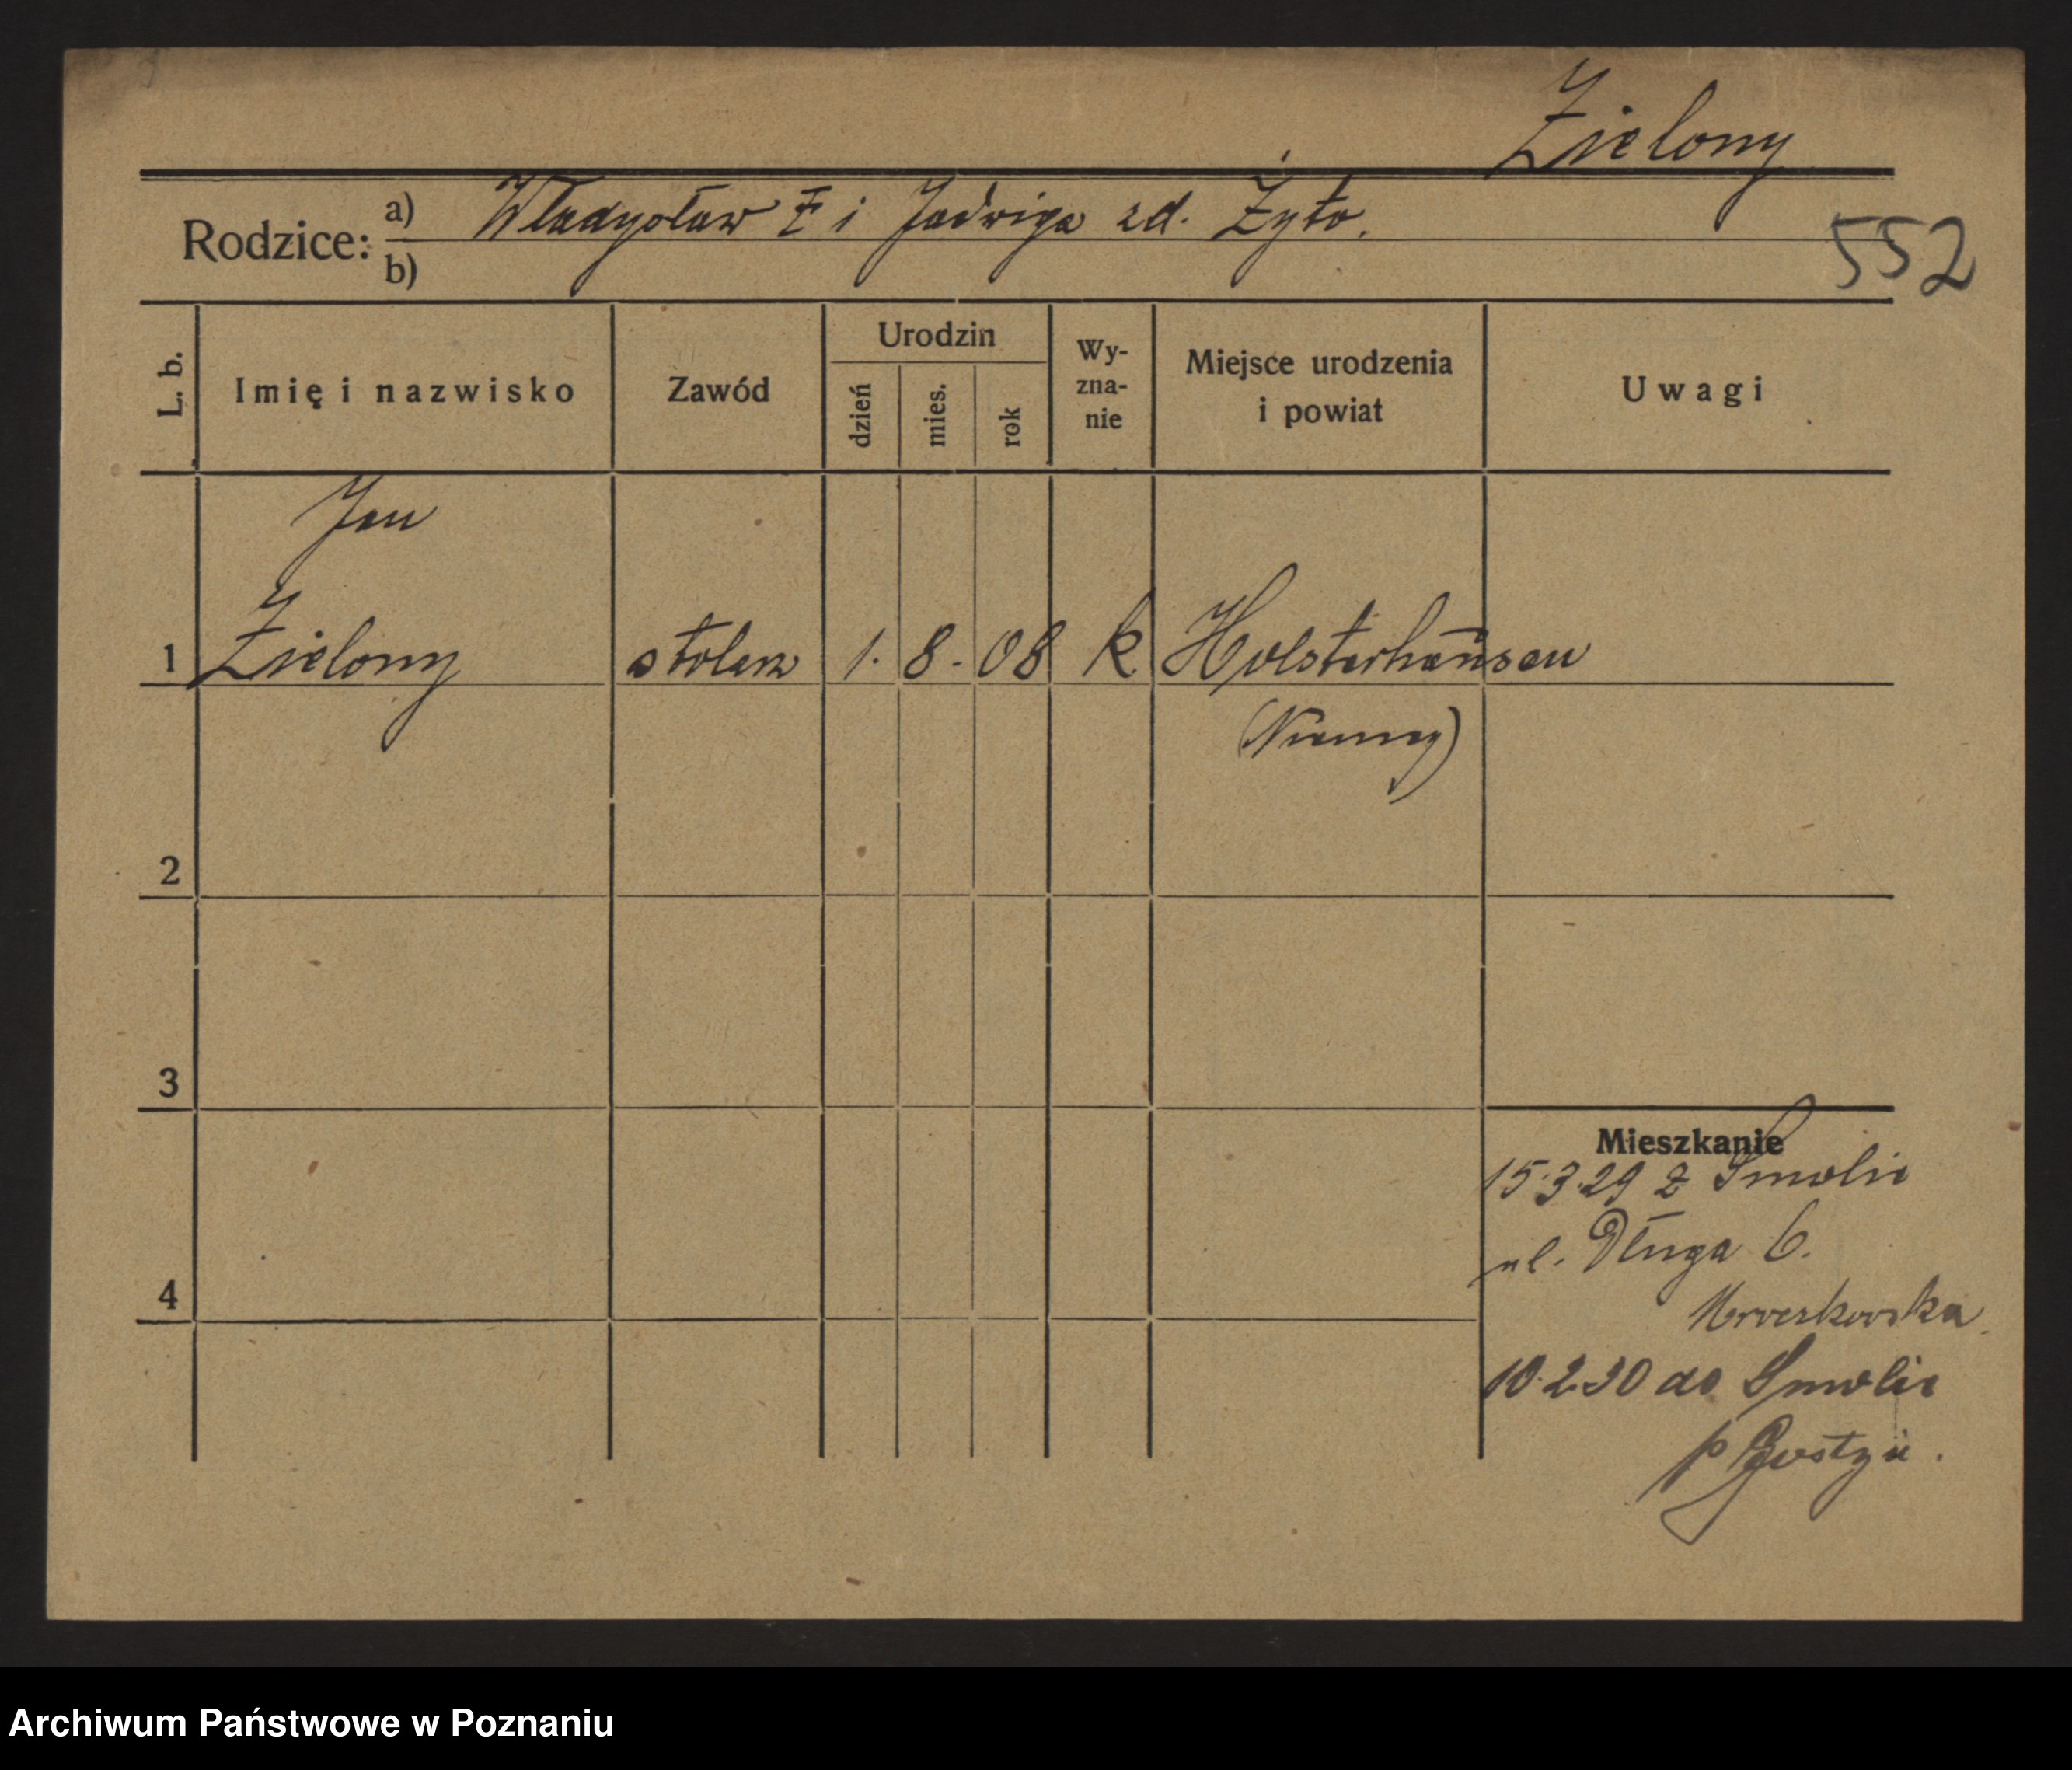 Zielony
Rodzice: a) Władysław Z i Jadwiga zd. Żyto.
b)
552
L. b.
Imię i nazwisko
Zawód
Urodzin
dzień
mies.
rok
Wy-
zna-
nie
Miejsce urodzenia
i powiat
Uwagi
Jan
1 Zielony stolarz 1. 8. 08 k Holsterhausen
(Niemcy)
2
3
4
Mieszkanie
15.3.29 z Smolic
ul. Długa 6.
10.2.30 do Smolic
p Gostyń.
Archiwum Państwowe w Poznaniu